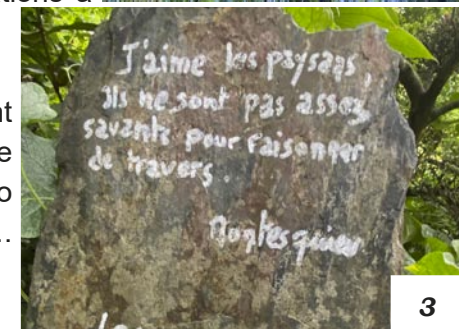 J'aime les paysans,
ils ne sont pas assez
savants pour raisonner
de travers.
Montesquieu
nt
e
o
..
3